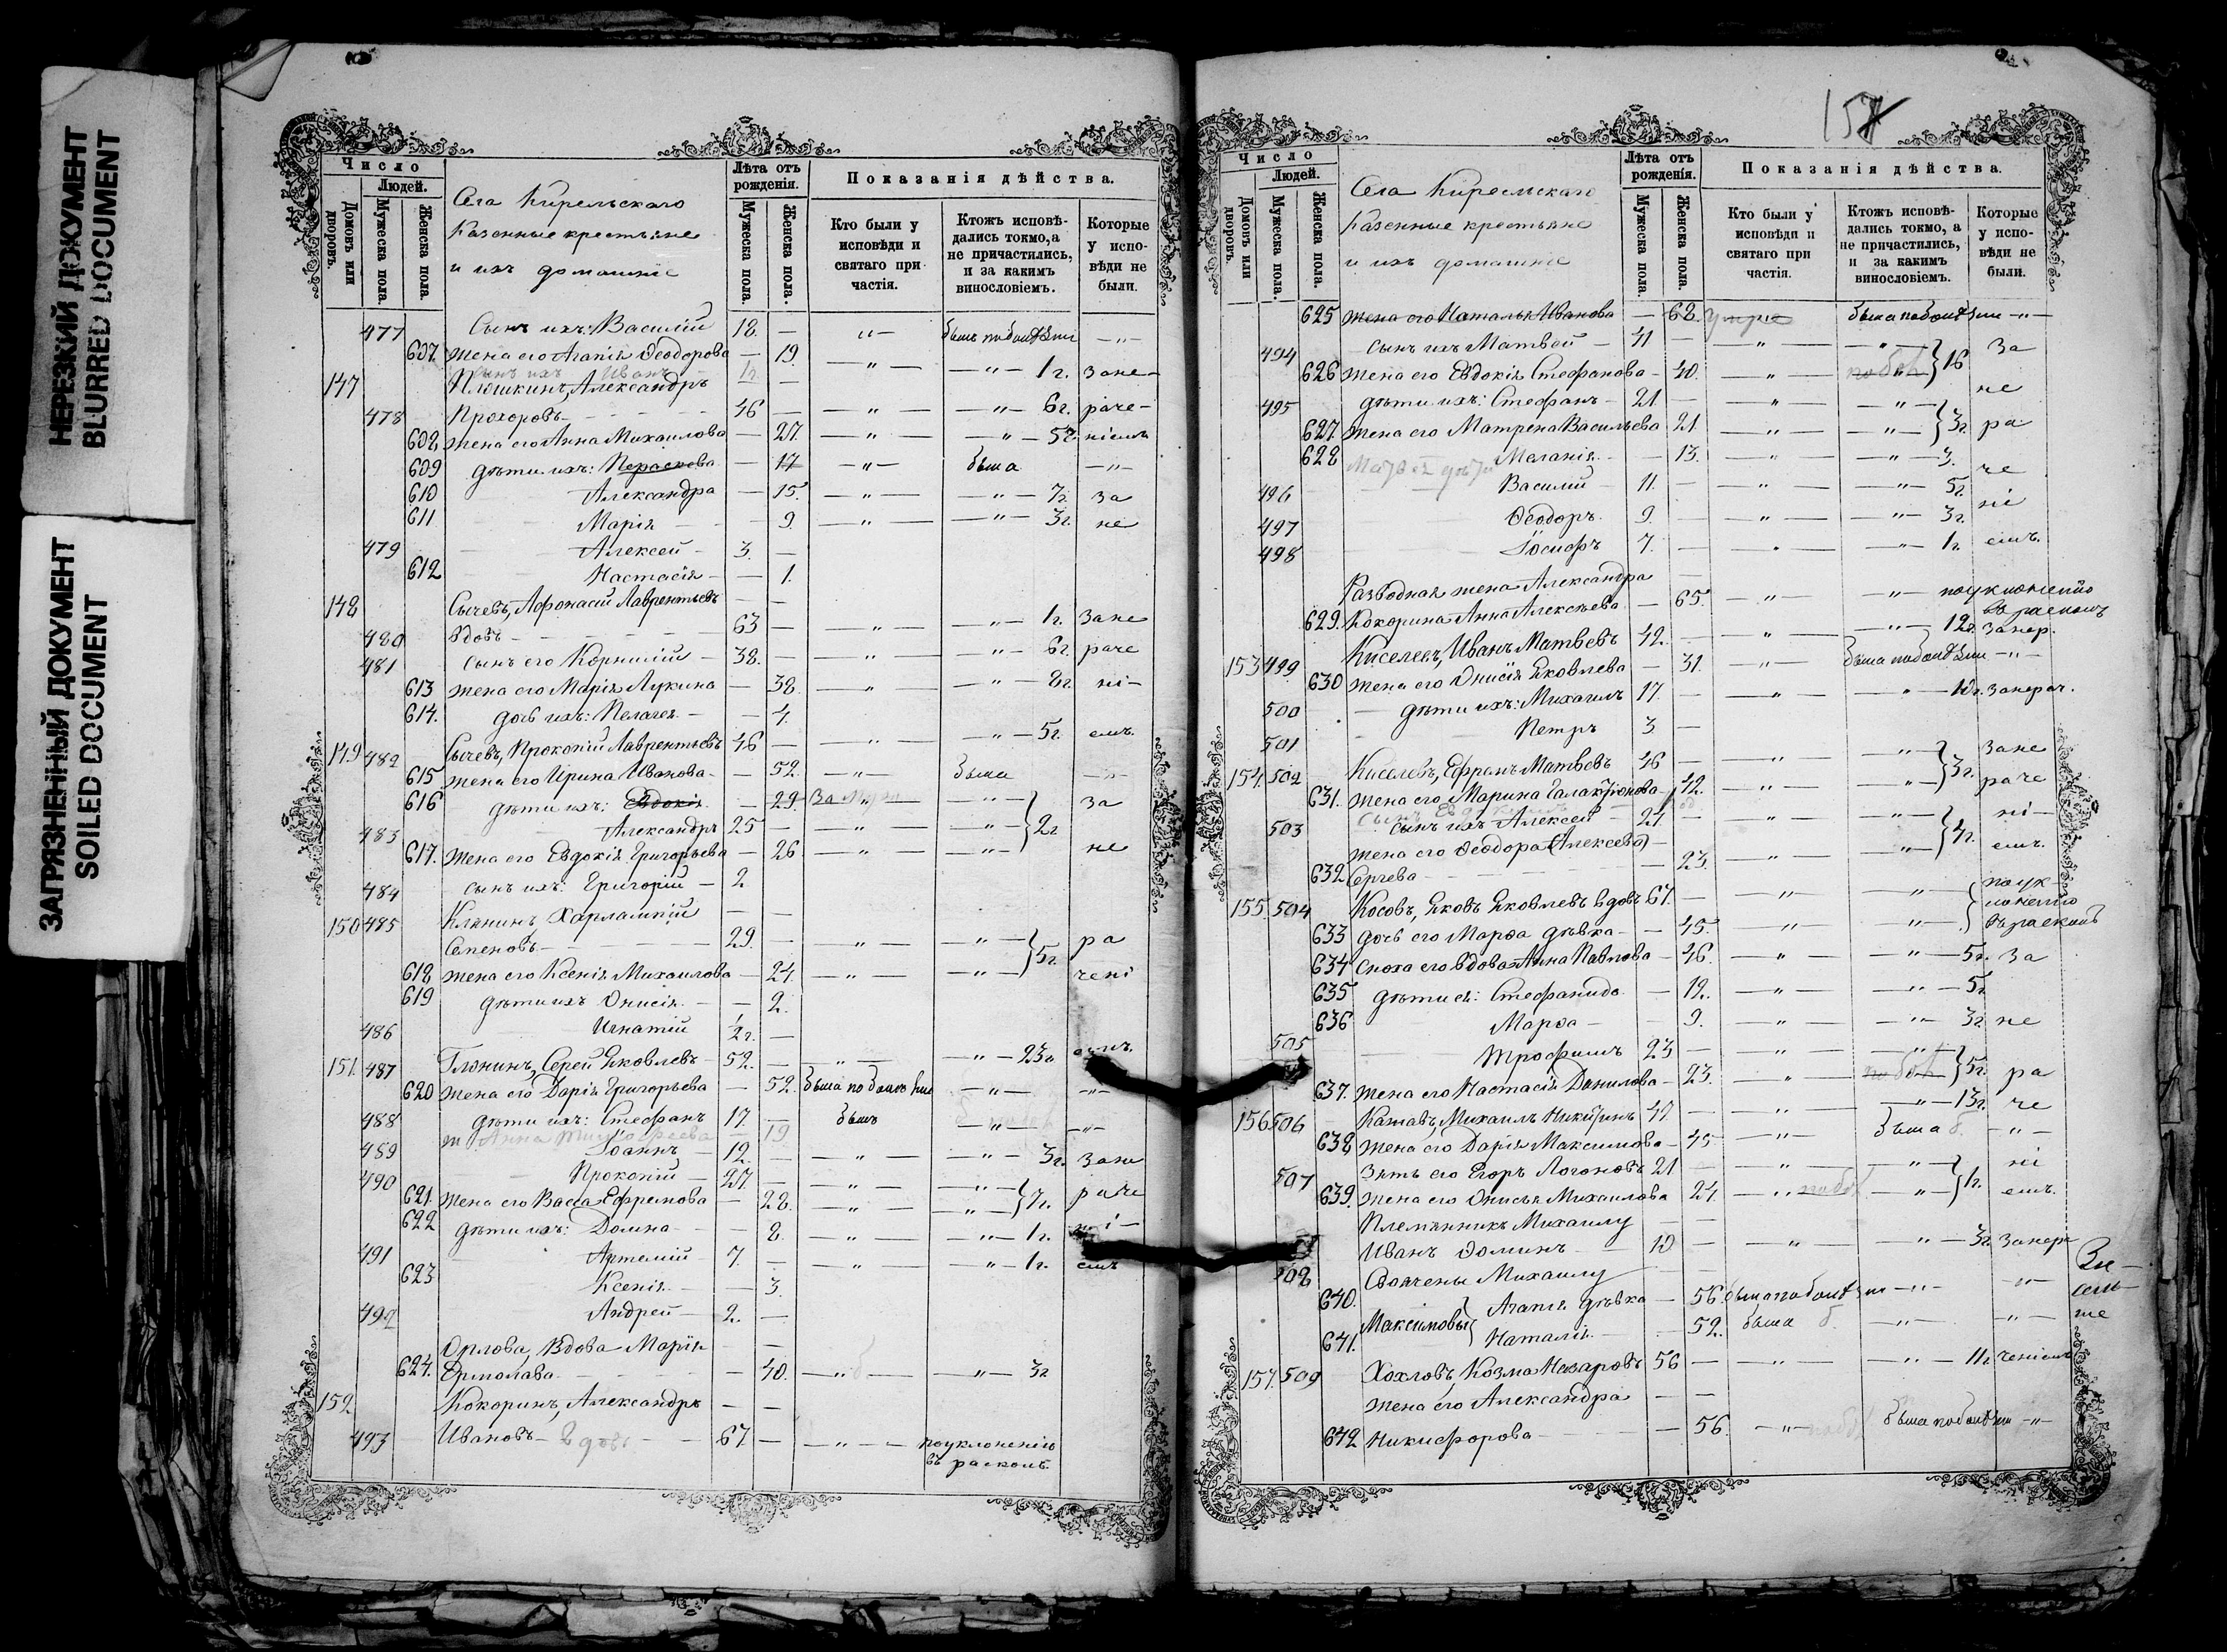 НЕРЕЗКИЙ ДОКУМЕНТ
BLURRED DOCUMENT
ЗАГРЯЗНЕННЫЙ ДОКУМЕНТ
SOILED DOCUMENT
Число
Людей.
Домовъ или дворовъ.
Мужеска пола.
Женска пола.
Села Кирельскаго
Казенные крестьяне
и ихъ домашніе
Лѣта отъ рожденія.
Мужеска пола.
Женска пола.
Показанія дѣйства.
Кто были у исповѣди и святаго причастія.
Ктожъ исповѣдались токмо, а не причастились, и за какимъ винословіемъ.
Которые у исповѣди не были.
477 Сынъ ихъ: Василій 18. — „ —
607. Жена его Агапія Ѳеодорова — 19. — „ — — „ — 1 г. Зане-
Сынъ ихъ Иванъ
147 Плюшкинъ, Александръ — —
478 Прохоровъ — 46 — — „ — — „ — 6 г. раче-
608 Жена его Анна Михаилова — 27. — „ — — „ — 5 г. ніемъ
609 дѣти ихъ: Параскева — 17 — „ — была — „ —
610 Александра — 15. — „ — — „ — 7 г. за
611 Марія — 9. — „ — — „ — 3 г. не
479 Алексей — 3. —
612 Настасія — — 1.
148 Сычевъ, Афонасій Лаврентьевъ — —
480 вдовъ — 63 — — „ — — „ — 1 г. Зане
481 сынъ его Корнилій — 38. — — „ — — „ — 6 г. раче
613 жена его Марія Лукина — 38. — „ — — „ — 8 г. ні-
614. дочь ихъ: Пелагея — — 4.
149 482 Сычевъ, Прокопій Лаврентьевъ 46 — — „ — — „ — 5 г. емъ.
615 жена его Ирина Иванова — — 52. — „ — была — „ —
616 дѣти ихъ: Евдокія — 29. — „ — — „ — за
483 Александръ 25 — — „ — — „ — } 2 г
617. Жена его Евдокія Григорьева — 26 — „ — — „ — не
484 сынъ ихъ: Григорій — 2
150 485 Клянинъ, Харлампій — —
Семеновъ — 29. — — „ — — „ — ра
618 жена его Ксенія Михаилова — 24. — „ — — „ — } 5 г. чені
619 дѣти ихъ Онисія — — 2.
486 Игнатій 1/2 г. —
151. 487 Глонинъ, Серей Яковлевъ — 52. — — „ — — „ — 23 г. емъ.
620 жена его Дарія Григорьева — 52. — „ — — „ —
488 дѣти ихъ: Стефанъ — 17. — былъ — „ — — „ —
Анна 19.
489 Іоаннъ — 12. — — „ — — „ — 3 г. Зане
490 Прокопій — 27. — — „ — — „ —
621. Жена его Васса Ефремова — 28. — „ — — „ — } 7 г. раче
622 дѣти ихъ: Домна — — 8. — „ — — „ — 1 г. ні-
491 Артемій — 7. — — „ — — „ — 1 г. емъ
623 Ксенія — — 3.
492 Андрей — 2. —
Орлова, Вдова Марія — —
624. Ермолава — — 40. — „ — — „ — 3 г
152 Кокоринъ, Александръ — —
493 Ивановъ — вдовъ — 67. — — „ — по уклоненію
въ расколъ.
157
Число
Людей.
Домовъ или дворовъ.
Мужеска пола.
Женска пола.
Села Кирельскаго
Казенные крестьяне
и ихъ домашніе
Лѣта отъ рожденія.
Мужеска пола.
Женска пола.
Показанія дѣйства.
Кто были у исповѣди и святаго причастія.
Ктожъ исповѣдались токмо, а не причастились, и за какимъ винословіемъ.
Которые у исповѣди не были.
625 жена его Наталья Иванова — 68. — „ —
494 сынъ ихъ Матвей — 41 — — „ — — „ — За
626 Жена его Евдокія Стефанова — 40. — „ — — „ — } 16
495 дѣти ихъ: Стефанъ — 21 — — „ — — „ — не
627. Жена его Матрена Васильева 21. — „ — — „ — } 3 г. ра
628 Меланія — — 13. — „ — — „ — 3. че
496 Василій — 11. — — „ — — „ — 5 г.
497 Ѳеодоръ — 9. — — „ — — „ — 3 г. ні
498 Іосифъ 7. — — „ — — „ — 1 г. емъ.
Разводная жена Александра —
629. Кокорина Анна Алексѣева — 65. — „ — — „ — по уклоненію
въ расколъ
153 499 Киселевъ, Иванъ Матвѣевъ 42. — — „ — — „ — 12 г. Занер.
630 жена его Онисія Яковлева — 31. — „ — — „ —
500 дѣти ихъ: Михаилъ 17. — — „ — — „ — 10 г. занерач.
501 Петръ 3 —
154. 502 Киселевъ, Ефремъ Матвѣевъ 46 — — „ — — „ — Зане
631. жена его, Марина Галактіонова — 42. — „ — — „ — } 3 г. раче
503 Сынъ ихъ Алексей — 21 — — „ — — „ — ні-
жена его Ѳеодора (Алексеева) —
632 Сергева — — 23. — „ — — „ — } 4 г. емъ.
155 504 Косовъ, Яковъ Яковлевъ вдовъ 67. — — „ — — „ — по ук-
633 дочь его Марѳа дѣвка — — 45. — „ — — „ — лоненію
въ расколъ
634 Сноха его вдова Анна Павлова — 46. — „ — — „ — 5 г. За
635 дѣти ея: Стефанида — 12. — „ — — „ — 5 г
636 Марѳа — — 9. — „ — — „ — 3 г. не
505 Трофимъ 23 — — „ — — „ —
637. жена его Настасія Данилова — 23. — „ — — „ — } 5 г. ра
156 506 Катавъ, Михаилъ Никитинъ 47 — — „ — — „ — 13 г. че
638 жена его Дарія Максимова — 45 — „ — была — „ —
507 Зять его Егоръ Логоновъ 21 — — „ — — „ — ні
639. жена его Онисья Михаилова 21. — „ — — „ — } 1 г. емъ.
Племянникъ Михаилу — —
Иванъ Ѳоминъ — 10 — — „ — — „ — 3 г. Занер
508 Своячены Михаилу — —
640. Максимовы { Агапія дѣвка — 56. — „ — — „ —
641. Наталія — — 52. была — „ — — „ —
157. 509 Хохловъ, Козма Назаровъ 56 — — „ — — „ — 11 г. ченіемъ
жена его Александра — —
642 Никифорова — — 56. — „ — — „ —